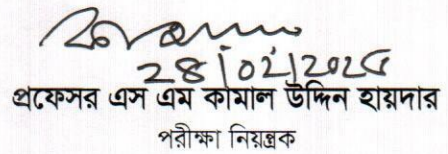 28/02/2025
প্রফেসর এস এম কামাল উদ্দিন হায়দার
পরীক্ষা নিয়ন্ত্রক